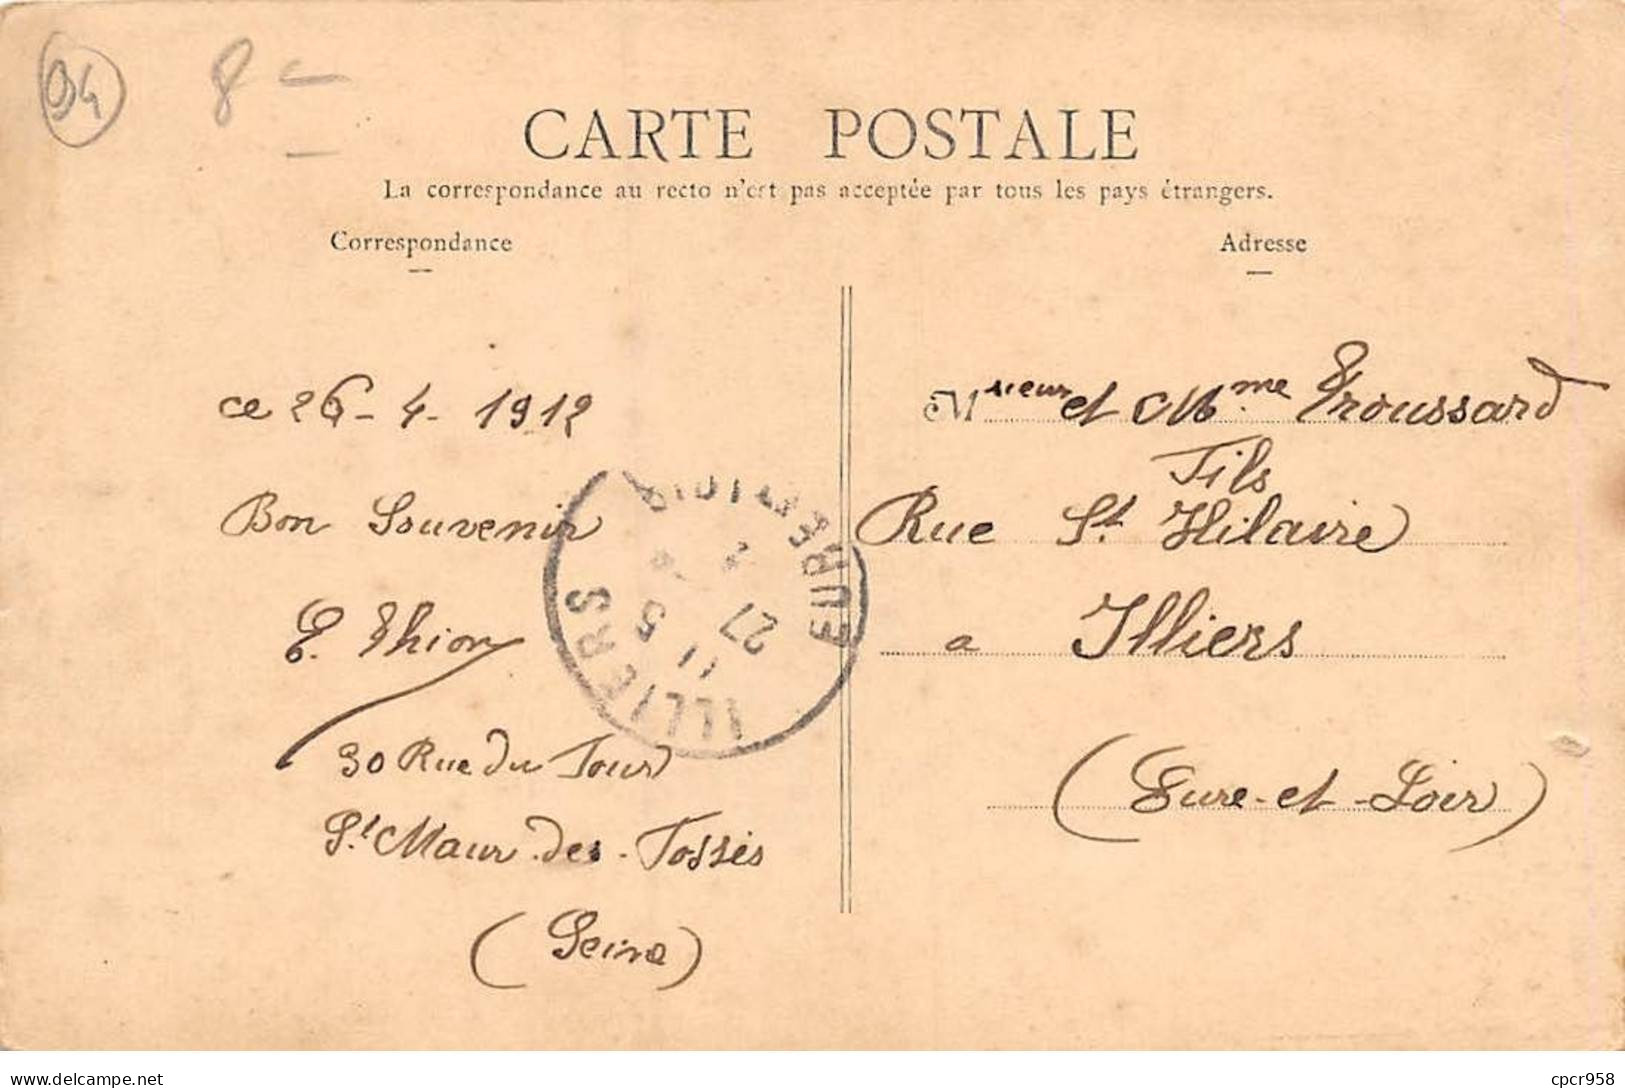 94
8 -
CARTE POSTALE
La correspondance au recto n'est pas acceptée par tous les pays étrangers.
Correspondance
Adresse
ce 26 - 4 - 1912
Bon Souvenir
E. Thion
30 Rue du Four
St. Maur-des-Fossés
(Seine)
Msieur et Mme Troussard
Fils
Rue St. Hilaire
a Illiers
(Eure-et-Loir)
ILLIERS
EURE
27
cpcr958
delcampe.net